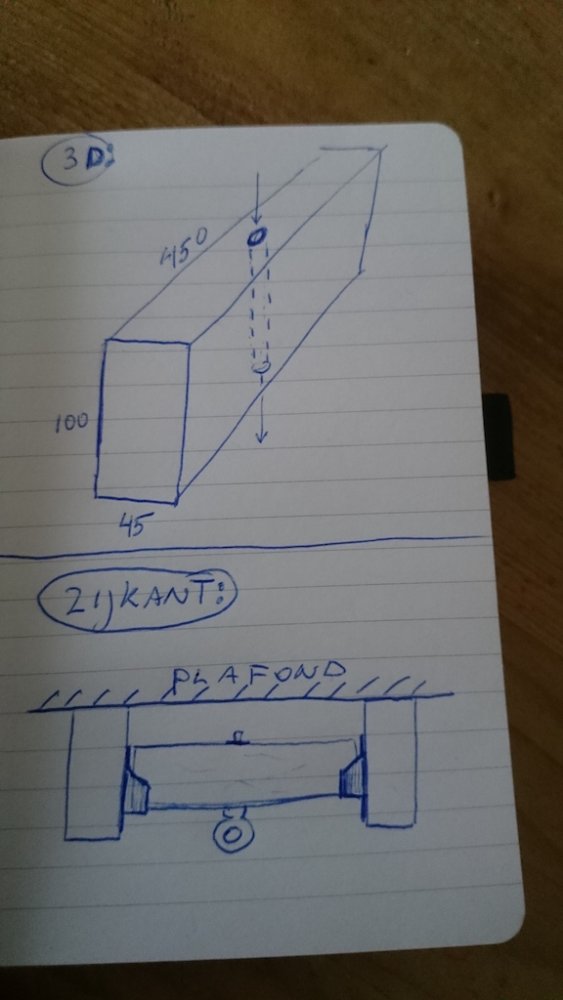 3D:
450
100
45
ZIJKANT:
PLAFOND